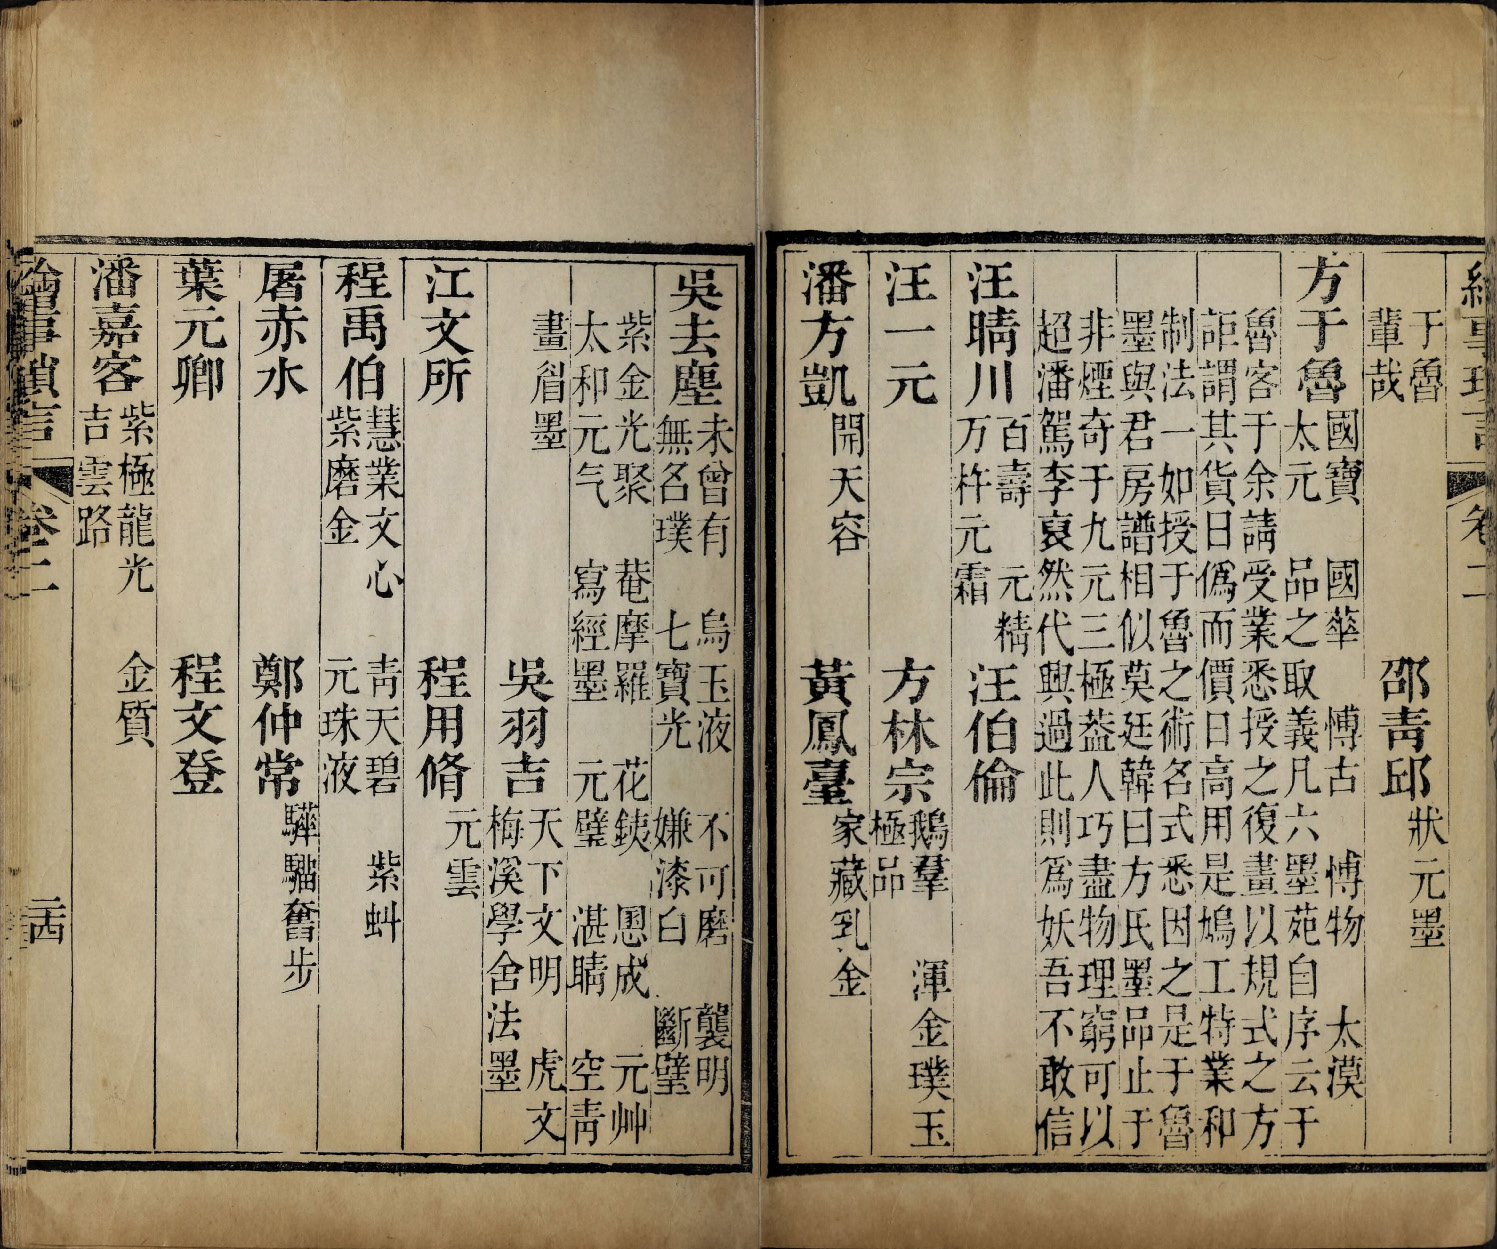 卷二
于魯
輩哉
邵青邱 狀元墨
方于魯 國寶 國華 博古 博物 太漠
太元 品之取義凡六墨苑自序云于
魯客于余請受業悉授之復畫以規式之方
詎謂其貨日僞而價日高用是鳩工特業和
制法一如授于魯之術名式悉因之是于魯
墨與君房譜相似莫廷韓曰方氏墨品止于
非煙奇于九元三極葢人巧盡物理窮可以
超潘駕李裒然代興過此則爲妖吾不敢信
汪晴川 百壽 元精
万杵元霜
汪伯倫
汪一元
方林宗 鵝羣 渾金璞玉
極品
潘方凱 開天容
黃鳳臺 家藏乳金
吳去塵 未曾有 烏玉液 不可磨 襲明
無名璞 七寶光 嫌漆白 斷璧
紫金光聚 菴摩羅 花鋏 慁成 元艸
太和元气 寫經墨 元璧 湛睛 空青
畫眉墨
吳羽吉 天下文明 虎文
梅溪學舍法墨
江文所
程用脩 元雲
程禹伯 慧業文心 青天碧 紫虯
紫磨金 元珠液
屠赤水
鄭仲常 驊騮奮步
葉元卿
程文登
潘嘉客 紫極龍光 金質
吉雲路
繪事瑣言 卷二